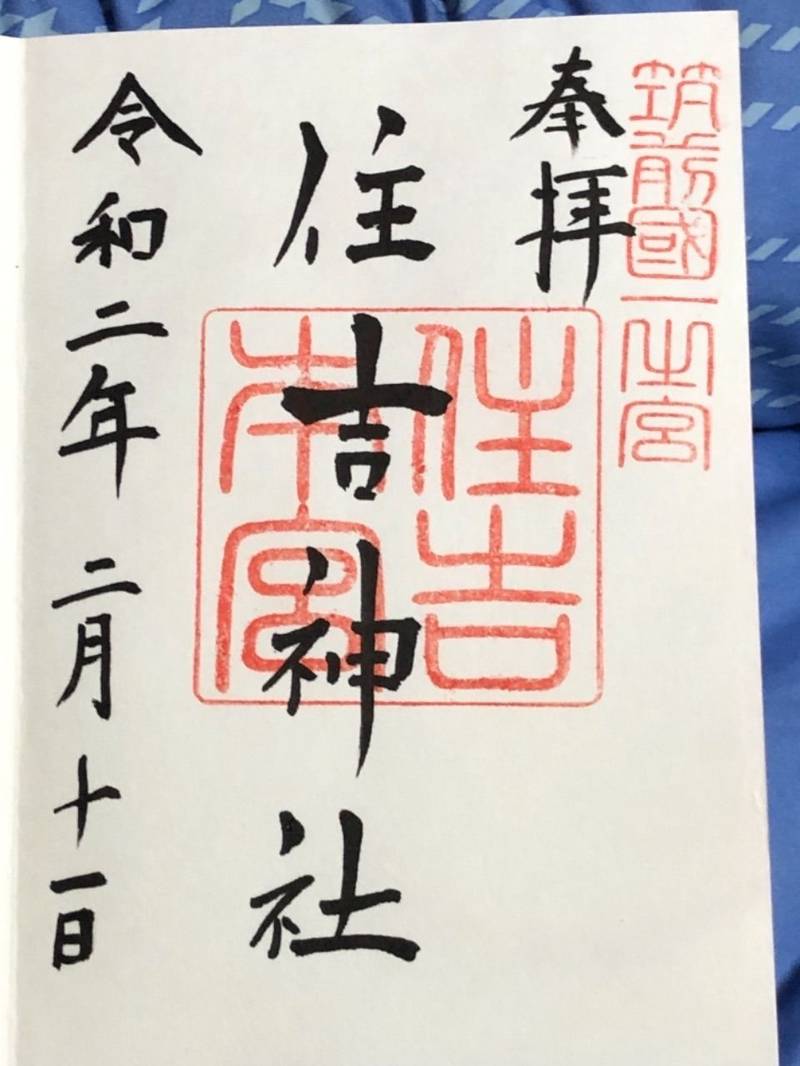 筑前國一之宮
奉拝
住吉神社
住吉
本宮
令和二年 二月十一日